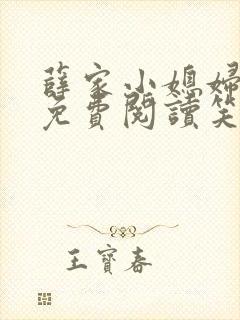 薛家小媳婦
免費閱讀笑
王寶春